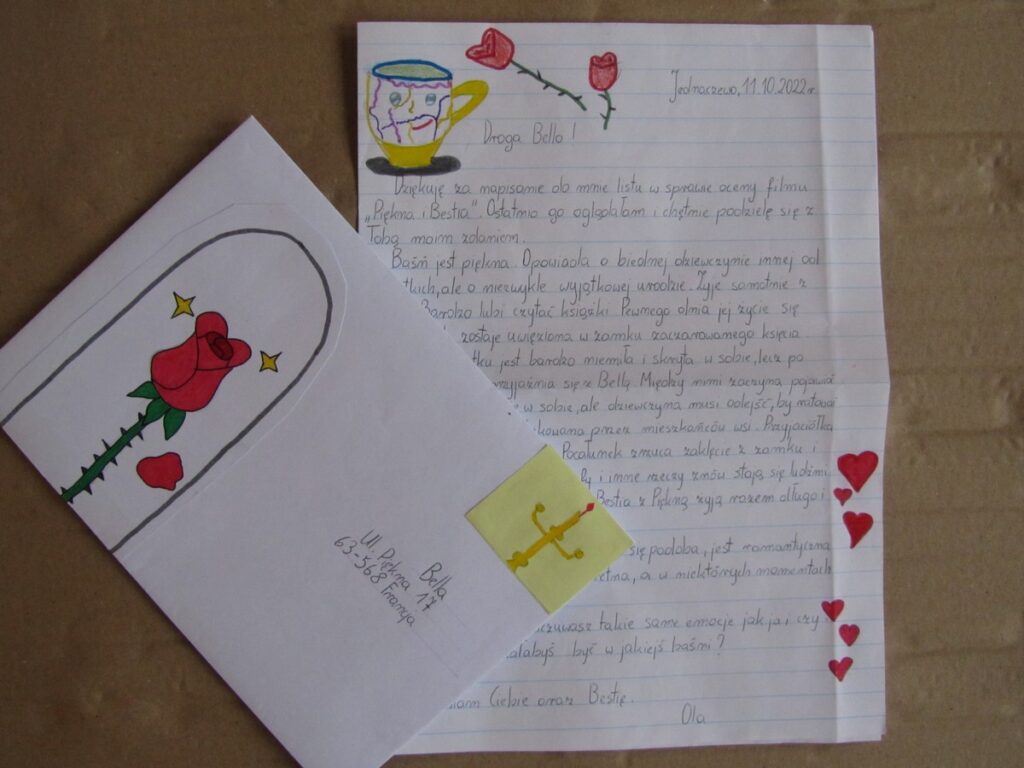 Jednaczewo, 11.10.2022r.
Droga Bello!
Dziękuję za napisanie do mnie listu w sprawie oceny filmu
„Piękna i Bestia". Ostatnio go oglądałam i chętnie podzielę się z
Tobą moim zdaniem.
Baśń jest piękna. Opowiada o biednej dziewczynie innej od
tkich, ale o niezwykle wyjątkowej urodzie. Żyje samotnie z
Bardzo lubi czytać książki. Pewnego dnia jej życie się
zostaje uwięziona w zamku zaczarowanego księcia
tku jest bardzo niemiła i skryta w sobie, lecz po
zyjaźnia się z Bellą. Między nimi zaczyna pojawiać
w sobie, ale dziewczyna musi odejść, by ratować
kowana przez mieszkańców wsi. Przyjaciółka
Pocałunek zrzuca zaklęcie z zamku i
ły i inne rzeczy znów stają się ludźmi.
Bestia z Piękną żyją razem długo i
się podoba, jest romantyczna
etna, a w niektórych momentach
czuwasz takie same emocje jak ja i czy
ałabyś być w jakiejś baśni?
iam Ciebie oraz Bestię.
Ola
Bella
Ul. Piękna 17
63-568 Francja